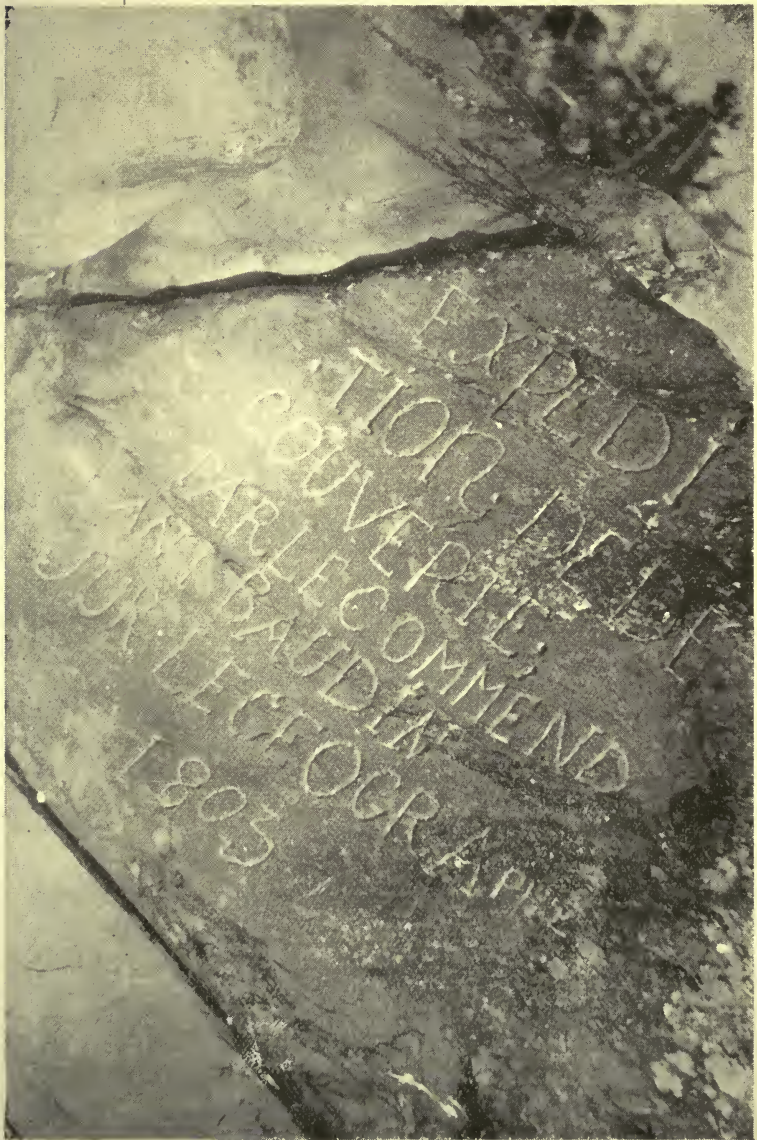 EXPEDI
TION DE DE
COUVERTE,
PAR LE COMMEND
ANT BAUDIN
SUR LE GEOGRAPHE
1803